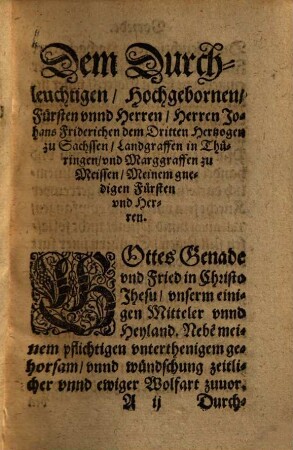 Dem Durch-
leuchtigen / Hochgebornen /
Fürsten vnnd Herren / Herren Jo-
hans Friderichen dem Dritten Hertzogen
zu Sachssen / Landgraffen in Thü-
ringen / vnd Marggraffen zu
Meissen / Meinem gne-
digen Fürsten
vnd Her-
ren.
GOttes Genade
vnd Fried in Christo
Jhesu / vnserm eini-
gen Mitteler vnnd
Heyland. Nebē mei-
nem pflichtigen vnterthenigem ge-
horsam / vnnd wündschung zeitli-
cher vnnd ewiger Wolfart zuuor.
A ij Durch-